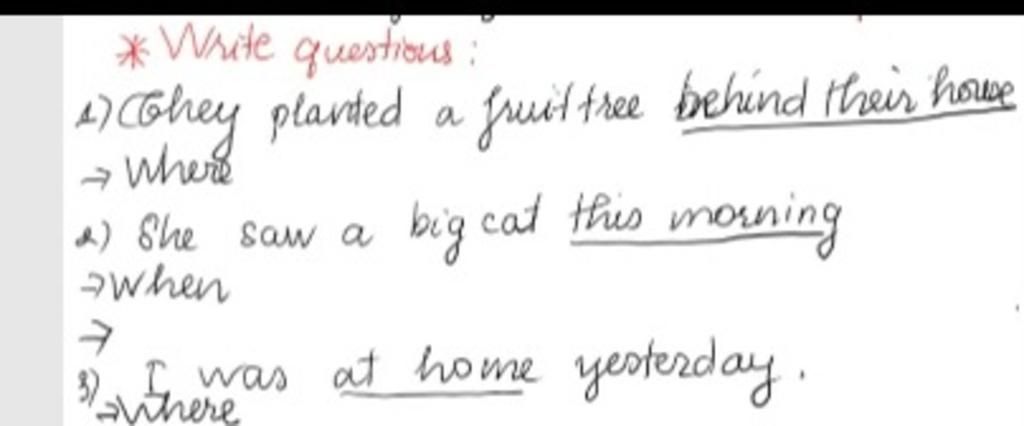 * Write questions :
1) They planted a fruit tree behind their house
→ Where
2) She saw a big cat this morning
→ When
→
3) I was at home yesterday.
→ Where